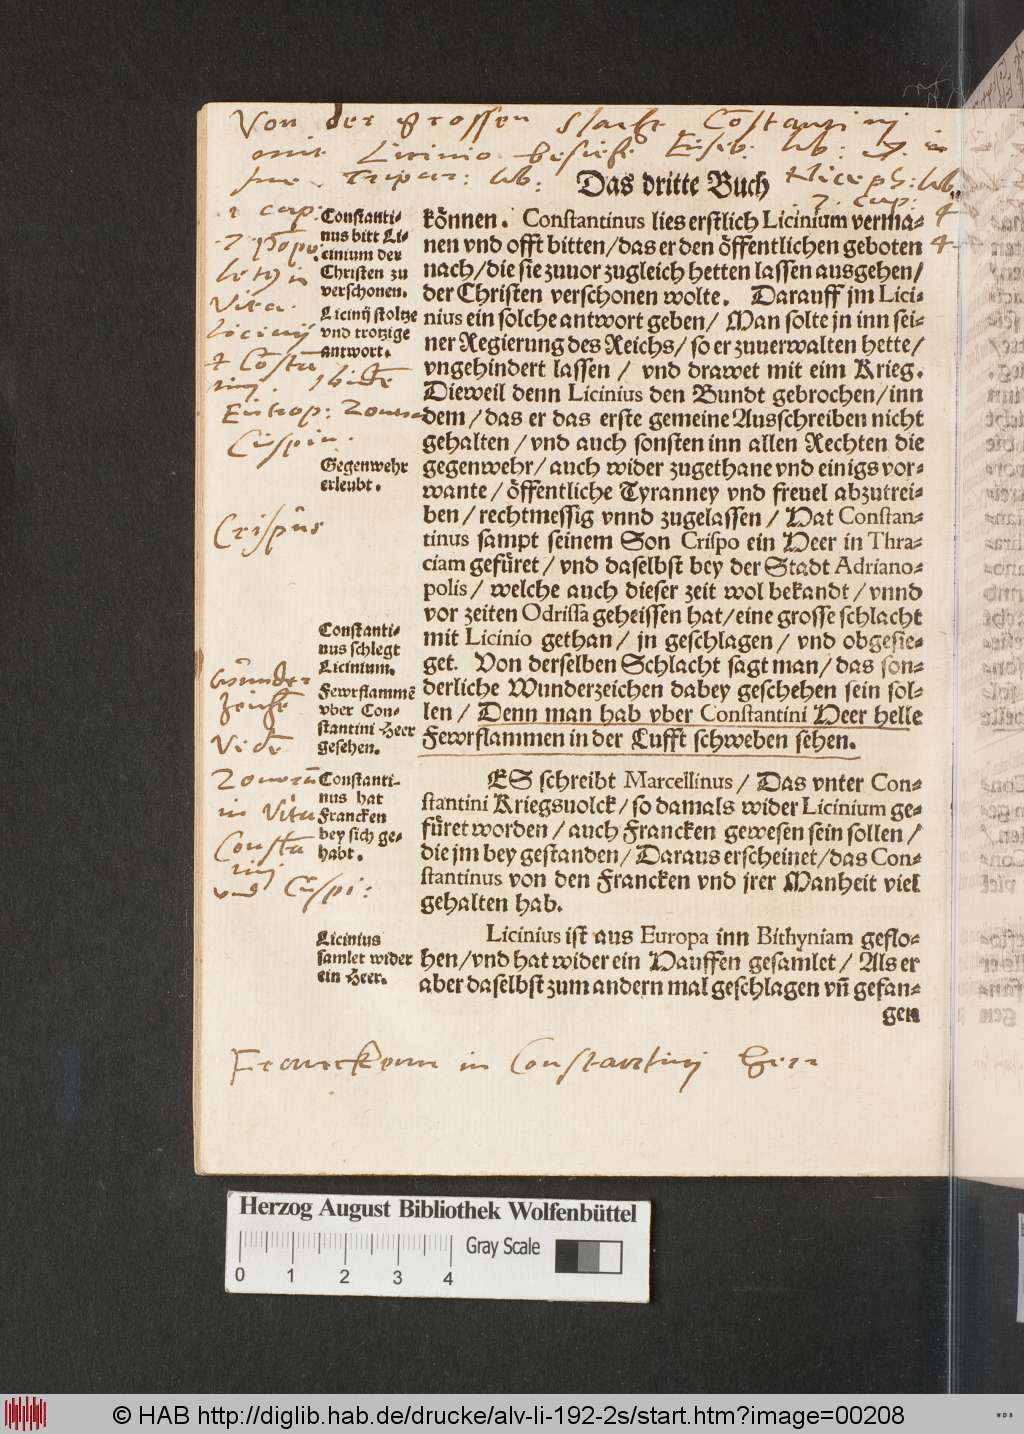 Von der grossen
Costantinj
mit Licinio besiehe Euseb: lib:
Tripar: lib:
Niceph: lib
Das dritte Buch
7. cap:
1 cap:
4
Constanti-
nus bitt Li-
cinium der
Christen zu
verschonen.
Licinij stoltze
vnd trotzige
antwort.
in
Vita
Licinij
Eutrop:
Cuspin.
Gegenwehr
erleubt.
Crispus
Constanti-
nus schlegt
Licinium.
Fewrflammē
vber Con-
stantini Heer
gesehen.
Wunder
zeichē
Vide
Constanti-
nus hat
Francken
bey sich ge-
habt.
in Vita
Constā
tinj
vnd Cuspi:
Licinius
samlet wider
ein Heer.
können. Constantinus lies erstlich Licinium verma-
nen vnd offt bitten/das er den öffentlichen geboten
nach/die sie zuuor zugleich hetten lassen ausgehen/
der Christen verschonen wolte. Darauff jm Lici-
nius ein solche antwort geben/ Man solte jn inn sei-
ner Regierung des Reichs/ so er zuuerwalten hette/
vngehindert lassen / vnd drawet mit eim Krieg.
Dieweil denn Licinius den Bundt gebrochen/inn
dem/das er das erste gemeine Ausschreiben nicht
gehalten/ vnd auch sonsten inn allen Rechten die
gegenwehr/auch wider zugethane vnd einigs vor-
wante/öffentliche Tyranney vnd freuel abzutrei-
ben/rechtmessig vnnd zugelassen/ Hat Constan-
tinus sampt seinem Son Crispo ein Heer in Thra-
ciam gefüret/ vnd daselbst bey der Stadt Adriano-
polis/ welche auch dieser zeit wol bekandt/vnnd
vor zeiten Odrissa geheissen hat/eine grosse schlacht
mit Licinio gethan/ jn geschlagen/ vnd obgesie-
get. Von derselben Schlacht sagt man/das son-
derliche Wunderzeichen dabey geschehen sein sol-
len/ Denn man hab vber Constantini Heer helle
Fewrflammen in der Lufft schweben sehen.
ES schreibt Marcellinus/ Das vnter Con-
stantini Kriegsuolck/so damals wider Licinium ge-
füret worden/auch Francken gewesen sein sollen/
die jm bey gestanden/Daraus erscheinet/das Con-
stantinus von den Francken vnd jrer Manheit viel
gehalten hab.
Licinius ist aus Europa inn Bithyniam geflo-
hen/vnd hat wider ein Hauffen gesamlet/ Als er
aber daselbst zum andern mal geschlagen vñ gefan-
gen
Franckenn in Constantinj Herr
Herzog August Bibliothek Wolfenbüttel
Gray Scale
0 1 2 3 4
© HAB http://diglib.hab.de/drucke/alv-li-192-2s/start.htm?image=00208